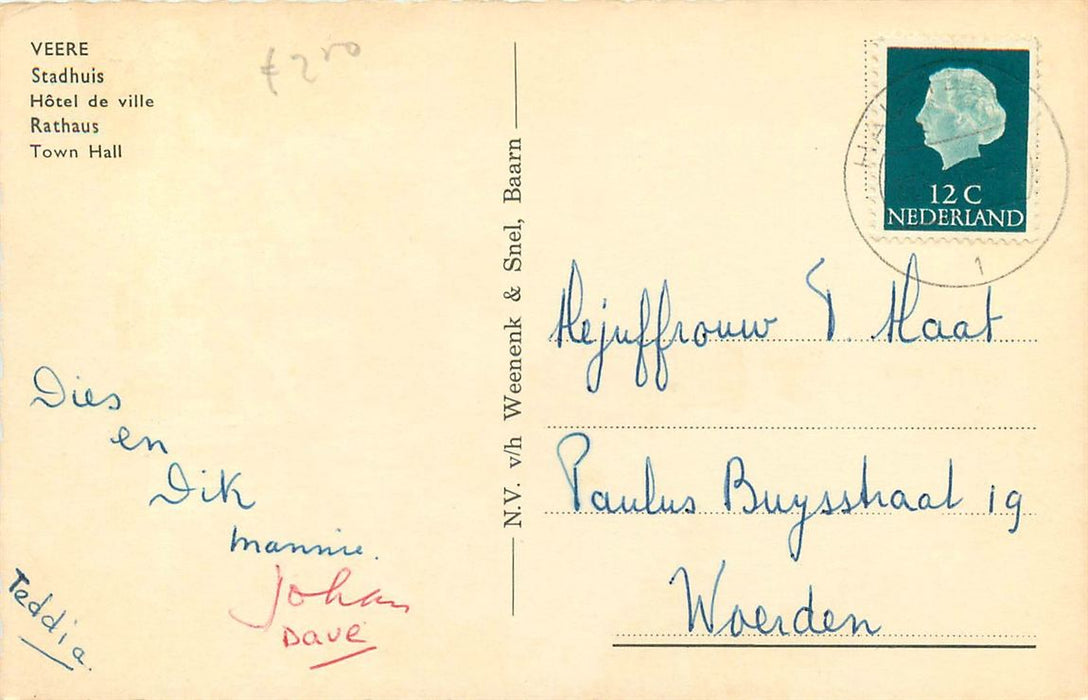 VEERE
Stadhuis
Hôtel de ville
Rathaus
Town Hall
€ 2,50
N.V. v/h Weenenk & Snel, Baarn
12 C
NEDERLAND
1
Mejuffrouw T. Maat
Paulus Buysstraat 19
Woerden
Dies
en
Dik
Mannie.
Johan
Dave
Teddia.